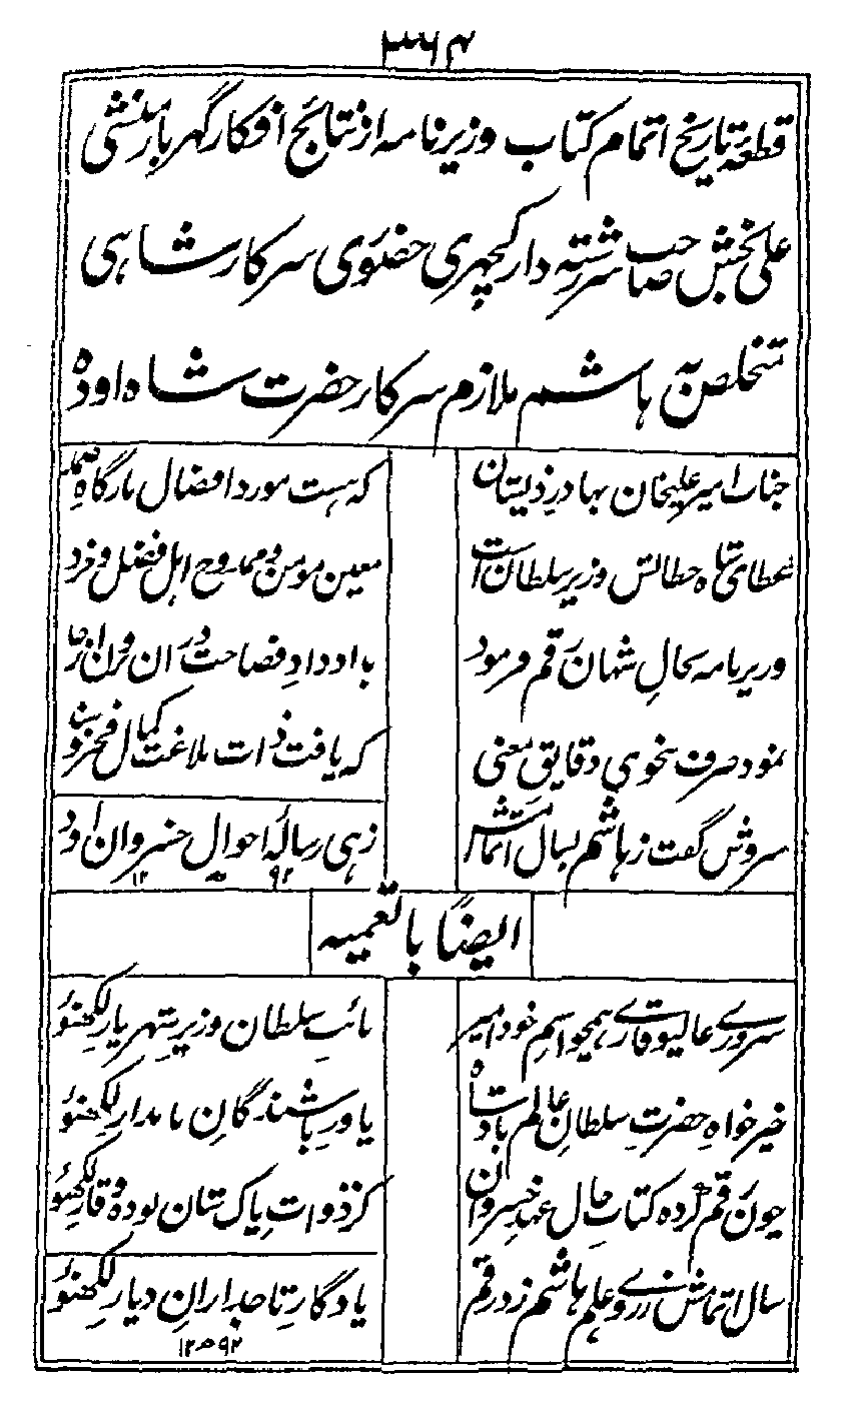 ۳۶۴
قطعۂ تاریخ اتمام کتاب وزیرنامہ از نتائج افکار گہربار منشی
علی بخش صاحب سررشتہ دار کچہری حضوری سرکار شاہی
تخلص بہ ہاشم ملازم سرکار حضرت شاہ اودہ
جناب امیر علیخان بہادر ذیشان که ہست مورد افضال بارگاہ صمد
عطای شاہ خطابش وزیر سلطان است معین مومن و ممدوح اہل فضل و خرد
وزیرنامہ بحال شہان رقم فرمود بداد داد فصاحت در ان
نمود صرف نحوی دقایق معنی که یافت ذات بلاغت کمال فخر
سروش گفت ز ہاشم بسال اتمامش زہی رسالۂ احوال خسروان اود
۱۲۹۲
ایضاً با تعمیہ
سرورے عالیوقارے ہمچو اسم خود امیر نائب سلطان وزیر شہریار لکھنؤ
خیرخواہ حضرت سلطان عالم بادشاہ یاور باشندگان نامدار لکھنؤ
چون رقم کردہ کتاب حال عہد خسروان کز ذوات پاک شان بودہ وقار لکھنؤ
سال اتمامش ز روے علم ہاشم زد رقم یادگار تاجداران دیار لکھنؤ
۱۲۹۲